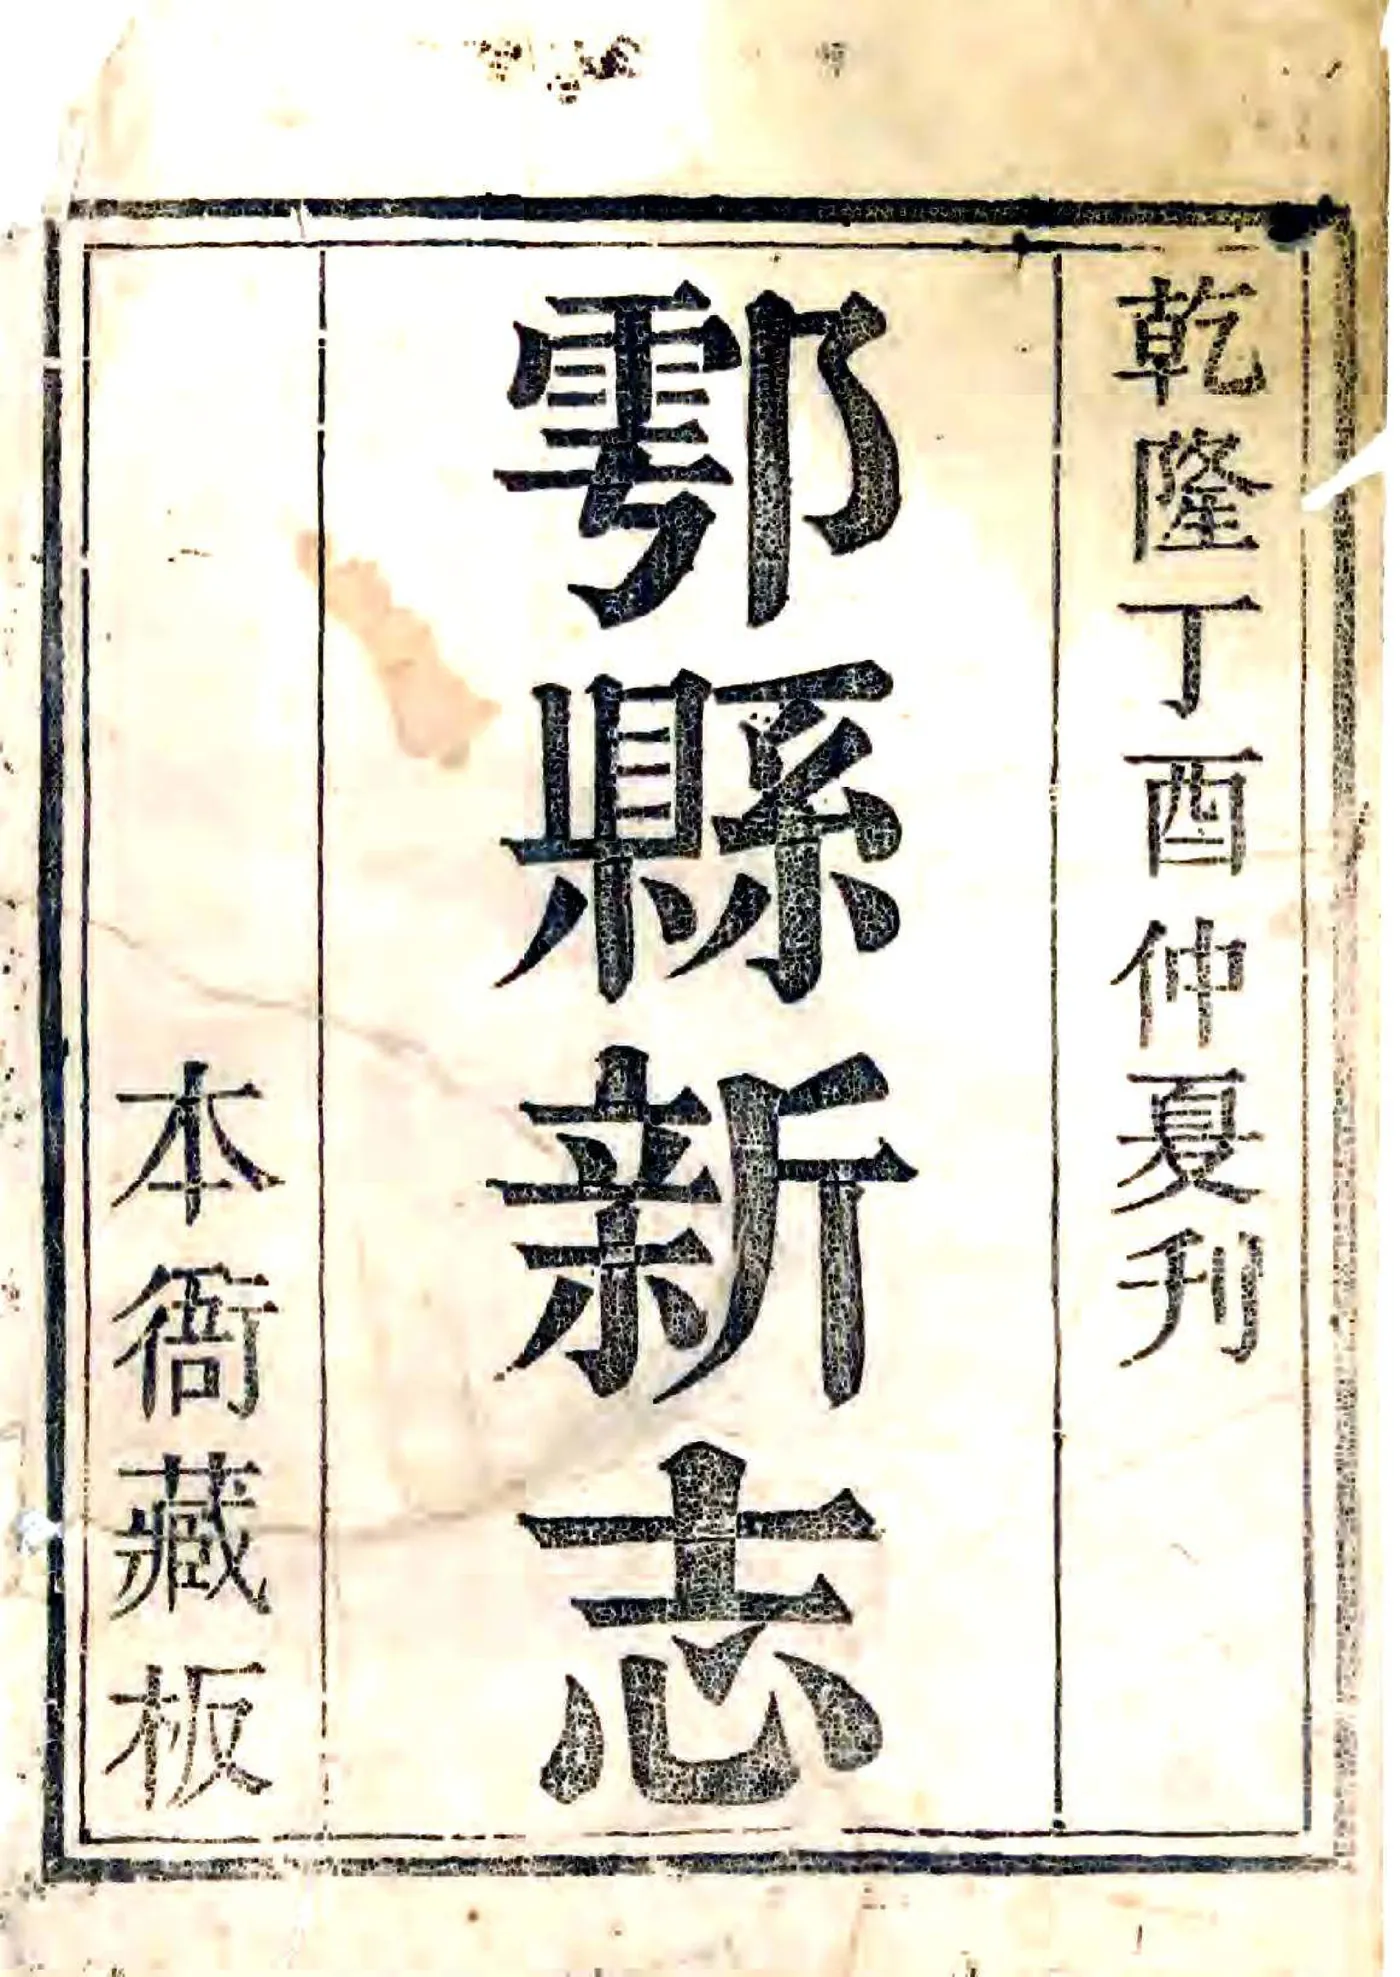 乾隆丁酉仲夏刊
鄠縣新志
本衙藏板